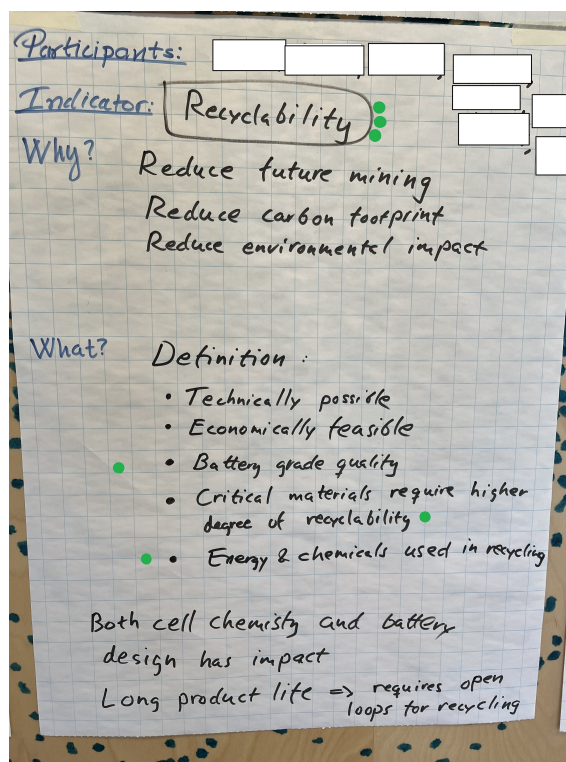 Participants:
Indicator: Recyclability
Why? Reduce future mining
Reduce carbon footprint
Reduce environmental impact
What? Definition:
• Technically possible
• Economically feasible
• Battery grade quality
• Critical materials require higher
degree of recyclability
• Energy & chemicals used in recycling
Both cell chemisty and battery
design has impact
Long product life => requires open
loops for recycling